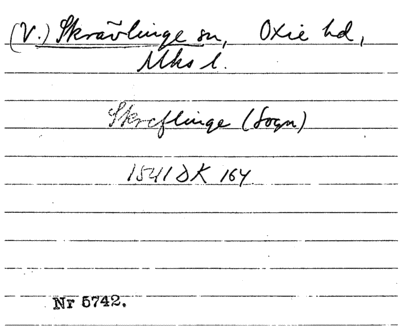 (V.) Skrävlinge sn, Oxie hd,
Mhs l.
Skreflinge (Sogn)
1541 DK 164
Nr 5742.